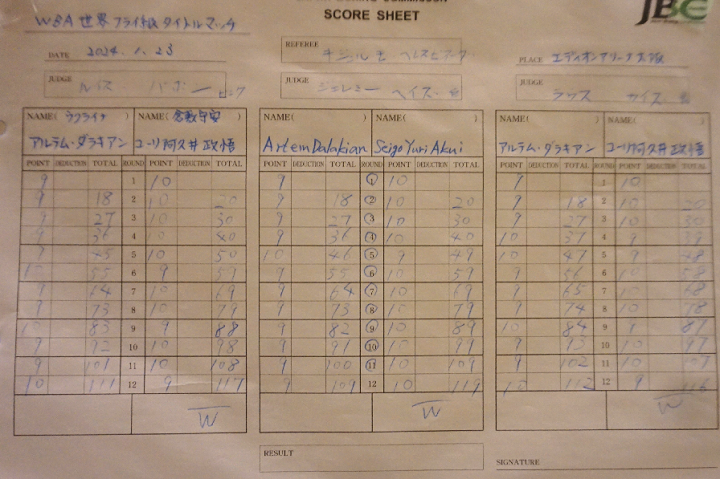 SCORE SHEET
JBC
WBA 世界 フライ級 タイトルマッチ
DATE 2024.1.23
REFEREE
PLACE エディオンアリーナ大阪
JUDGE ルイス パボン
JUDGE ジェレミー ヘイズ
JUDGE
NAME( ウクライナ ) NAME( 倉敷守安 )
アルテム・ダラキアン ユーリ阿久井 政悟
POINT DEDUCTION TOTAL ROUND POINT DEDUCTION TOTAL
9 1 10
9 18 2 10 20
9 27 3 10 30
9 36 4 10 40
9 45 5 10 50
10 55 6 9 59
9 64 7 10 69
9 73 8 10 79
10 83 9 9 88
9 92 10 10 98
9 101 11 10 108
10 111 12 9 117
W
NAME( ) NAME( )
Artem Dalakian Seigo Yuri Akui
POINT DEDUCTION TOTAL ROUND POINT DEDUCTION TOTAL
9 1 10
9 18 2 10 20
9 27 3 10 30
9 36 4 10 40
10 46 5 9 49
9 55 6 10 59
9 64 7 10 69
9 73 8 10 79
9 82 9 10 89
9 91 10 10 99
9 100 11 10 109
9 109 12 10 119
W
NAME( ) NAME( )
アルテム・ダラキアン ユーリ阿久井 政悟
POINT DEDUCTION TOTAL ROUND POINT DEDUCTION TOTAL
9 1 10
9 18 2 10 20
9 27 3 10 30
10 37 4 9 39
10 47 5 9 48
9 56 6 10 58
9 65 7 10 68
9 74 8 10 78
10 84 9 9 87
9 93 10 10 97
9 102 11 10 107
10 112 12 9 116
W
RESULT
SIGNATURE